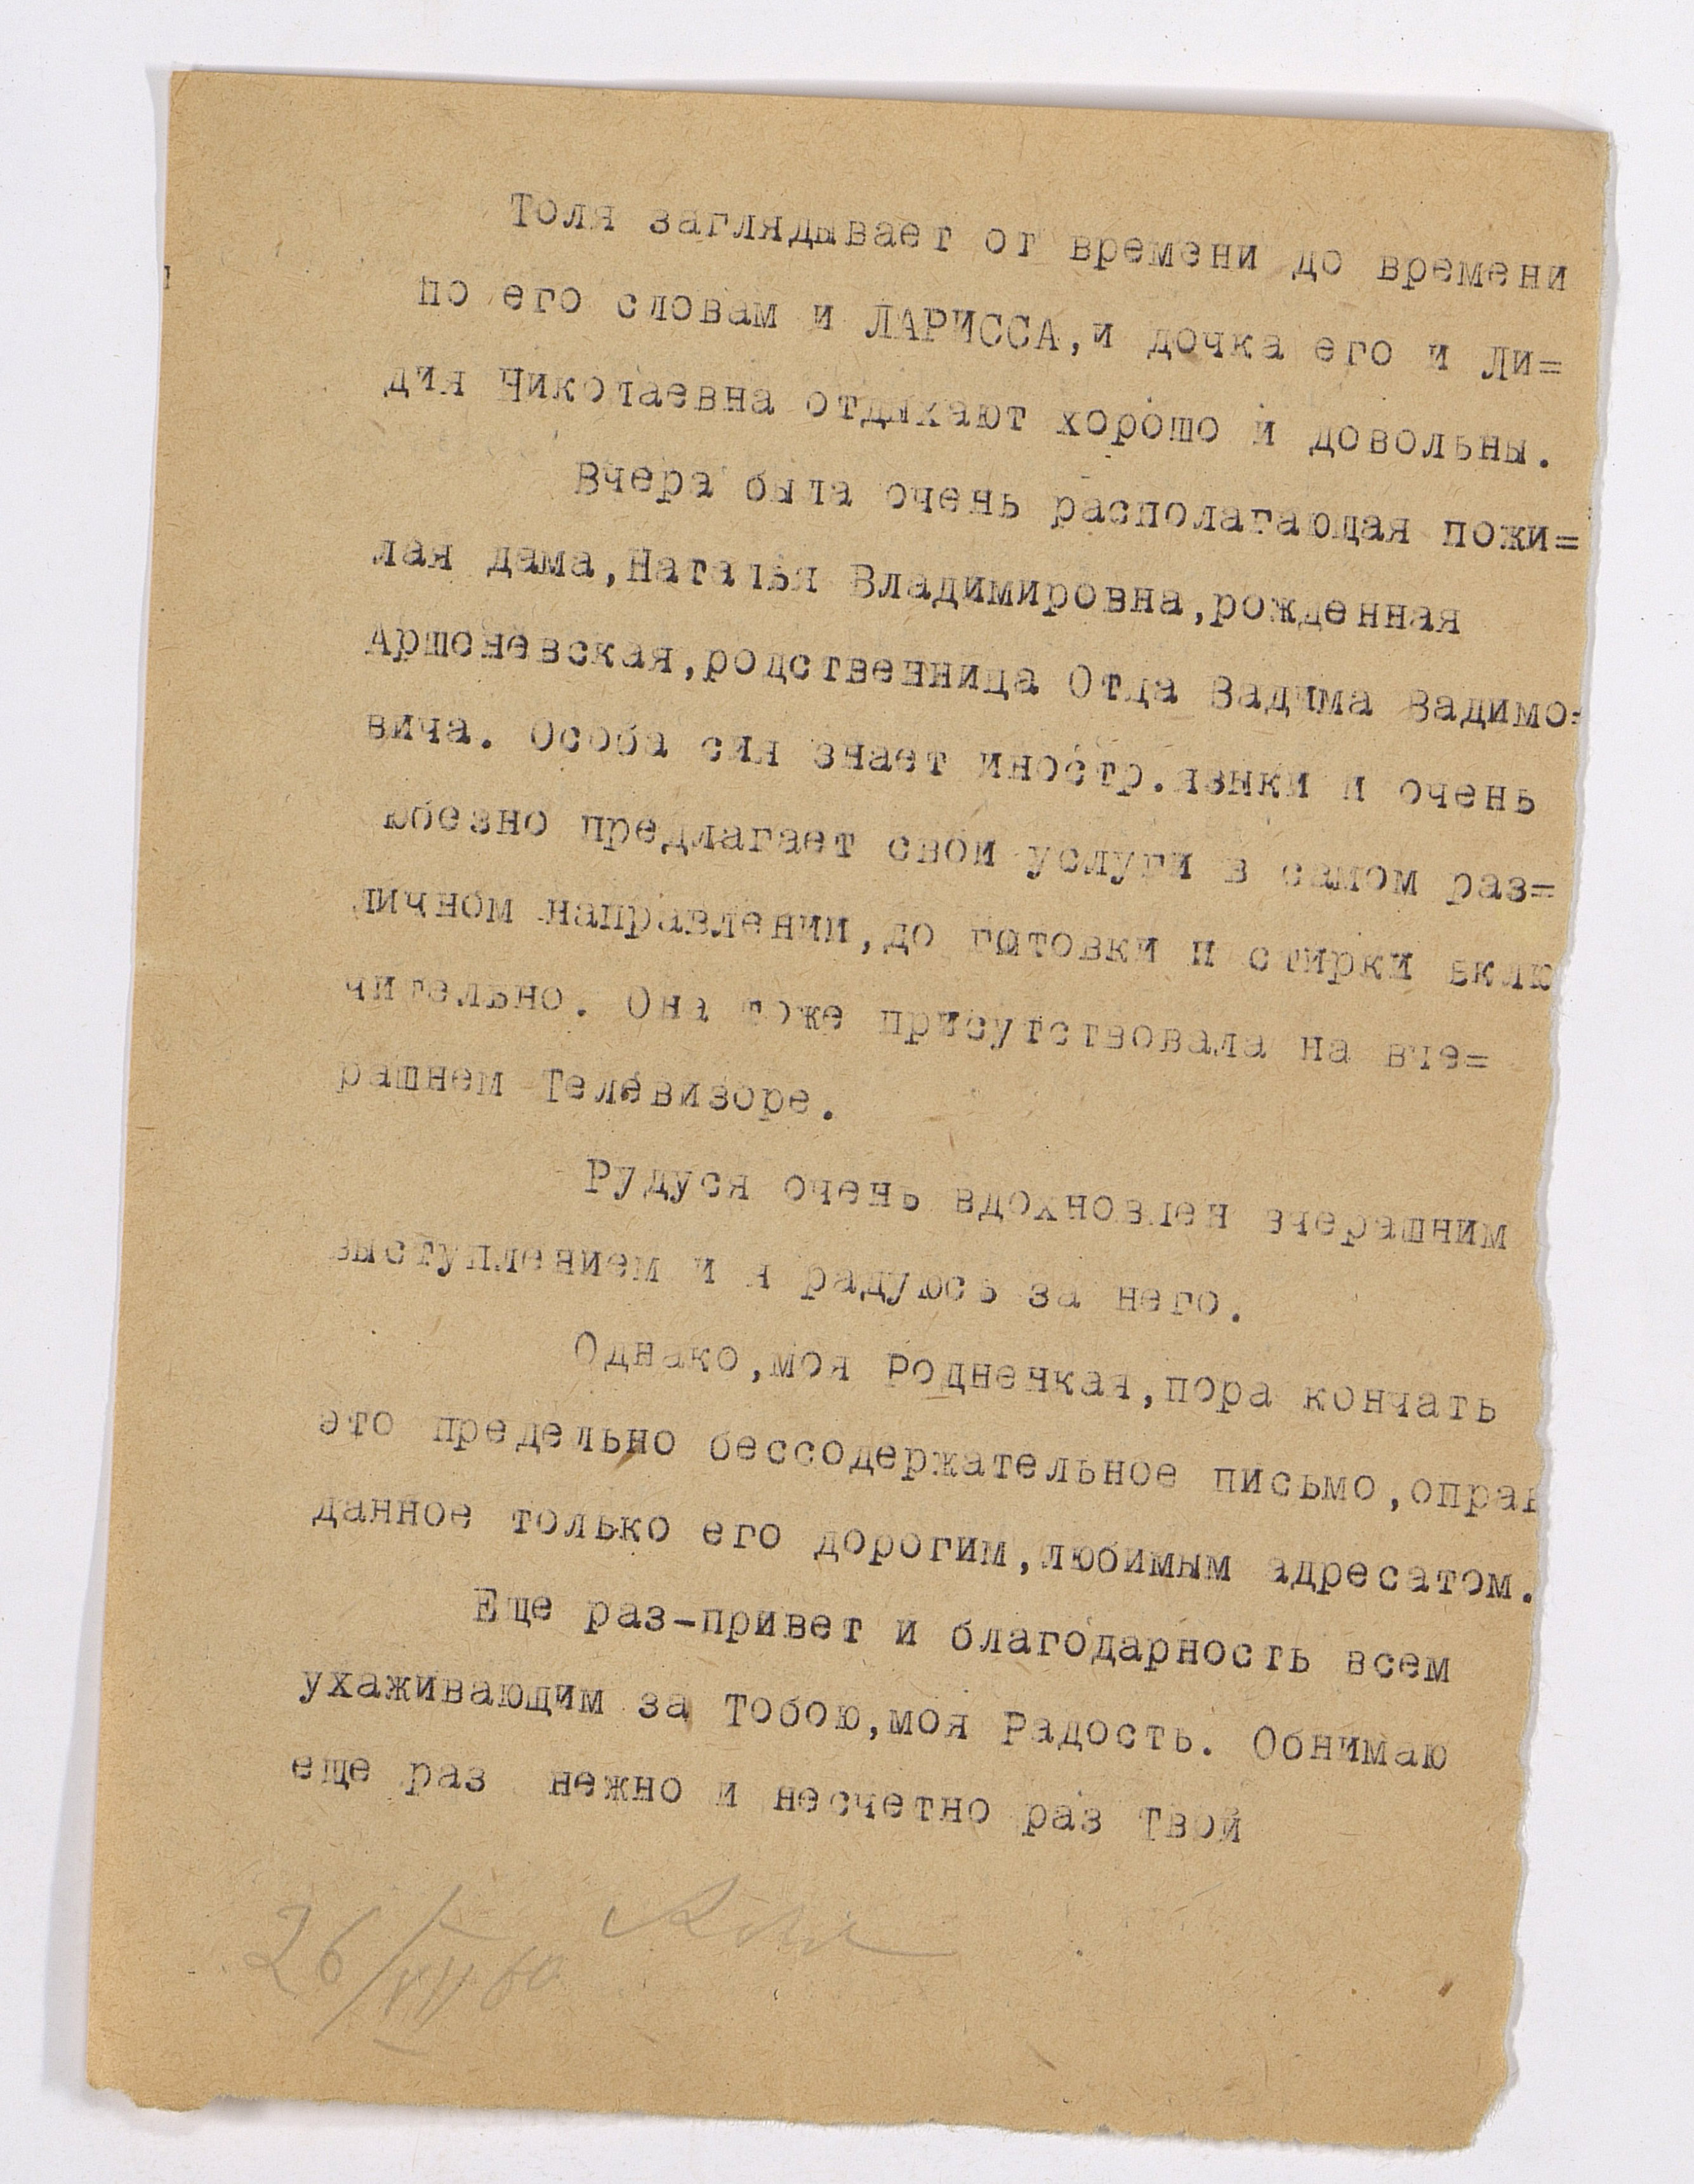 Толя заглядывает от времени до времени
по его словам и ЛАРИССА,и дочка его и Ли=
дия Николаевна отдыхают хорошо и довольны.
Вчера была очень располагающая пожи=
лая дама,Наталья Владимировна,рожденная
Аршеневская,родственница Отца Вадима Вадимо=
вича. Особа сия знает иностр.языки и очень
юбезно предлагает свои услуги в самом раз=
личном направлении,до готовки и стирки вклю
чительно. Она тоже присутствовала на вче=
рашнем Телевизоре.
Рудуся очень вдохновлен вчерашним
выступлением и я радуюсь за него.
Однако,моя Родненкая,пора кончать
это предельно бессодержательное письмо,оправ
данное только его дорогим,любимым адресатом.
Еще раз-привет и благодарность всем
ухаживающим за Тобою,моя Радость. Обнимаю
еще раз нежно и несчетно раз Твой
26/VII 60